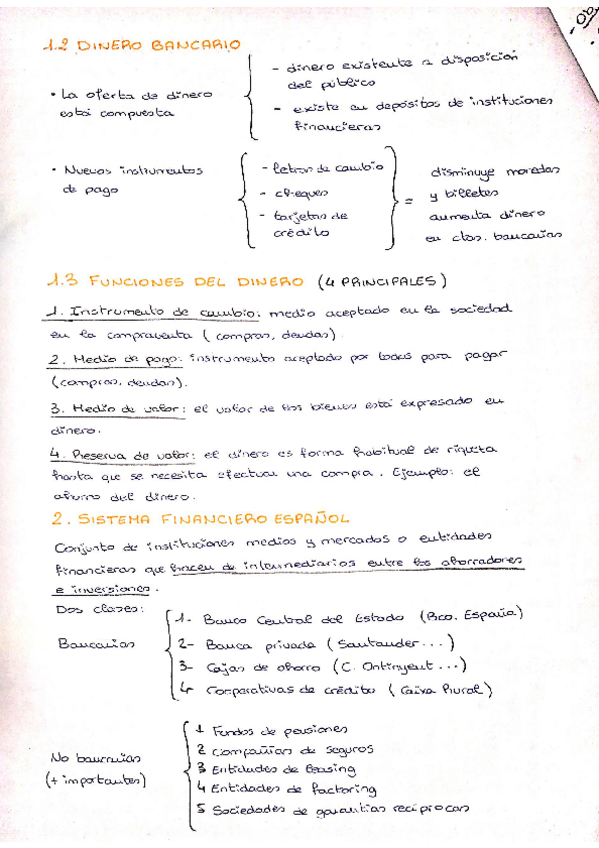 1.2 DINERO BANCARIO
• La oferta de dinero
está compuesta
- dinero existente a disposición
del público
- existe en depósitos de instituciones
financieras
• Nuevos instrumentos
de pago
- letras de cambio
- cheques
- tarjetas de
crédito
= disminuye monedas
y billetes
aumenta dinero
en ctas. bancarias
1.3 FUNCIONES DEL DINERO (4 PRINCIPALES)
1. Instrumento de cambio: medio aceptado en la sociedad
en la compraventa (compras, deudas).
2. Medio de pago: instrumento aceptado por todos para pagar
(compras, deudas).
3. Medio de valor: el valor de los bienes está expresado en
dinero.
4. Reserva de valor: el dinero es forma habitual de riqueza
hasta que se necesita efectuar una compra. Ejemplo: el
ahorro del dinero.
2. SISTEMA FINANCIERO ESPAÑOL
Conjunto de instituciones medios y mercados o entidades
financieras que hacen de intermediarios entre los ahorradores
e inversiones.
Dos clases:
Bancarias
1- Banco Central del Estado (Bco. España)
2- Banca privada (Santander...)
3- Cajas de ahorro (C. Ontinyent...)
4- Corporativas de crédito (Caixa Rural)
No bancarias
(+ importantes)
1 Fondos de pensiones
2 Compañías de seguros
3 Entidades de leasing
4 Entidades de factoring
5 Sociedades de garantías recíprocas